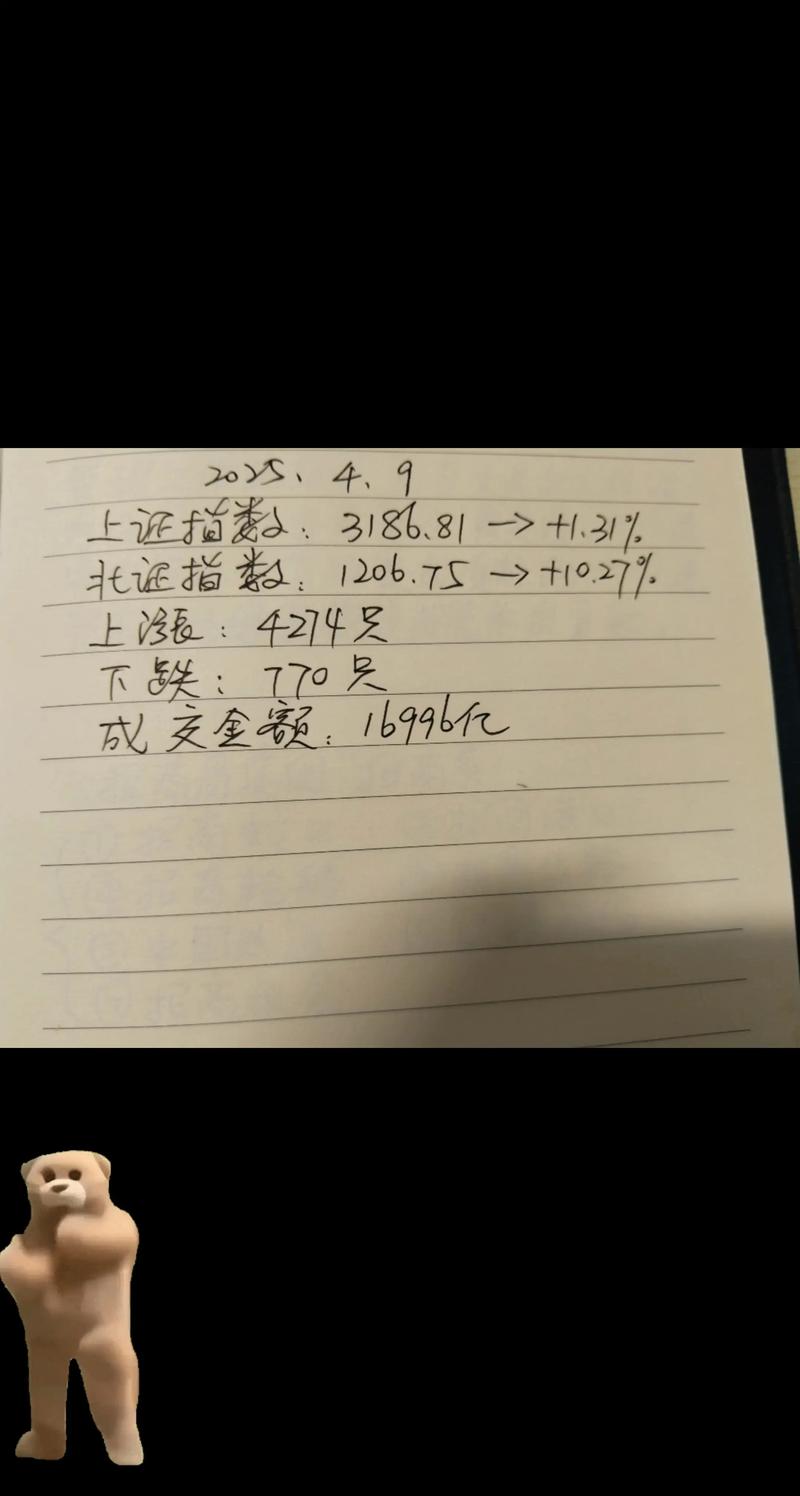 2025、4、9
上证指数：3186.81 → +1.31%
北证指数：1206.75 → +10.27%
上涨：4274只
下跌：770只
成交金额：16996亿